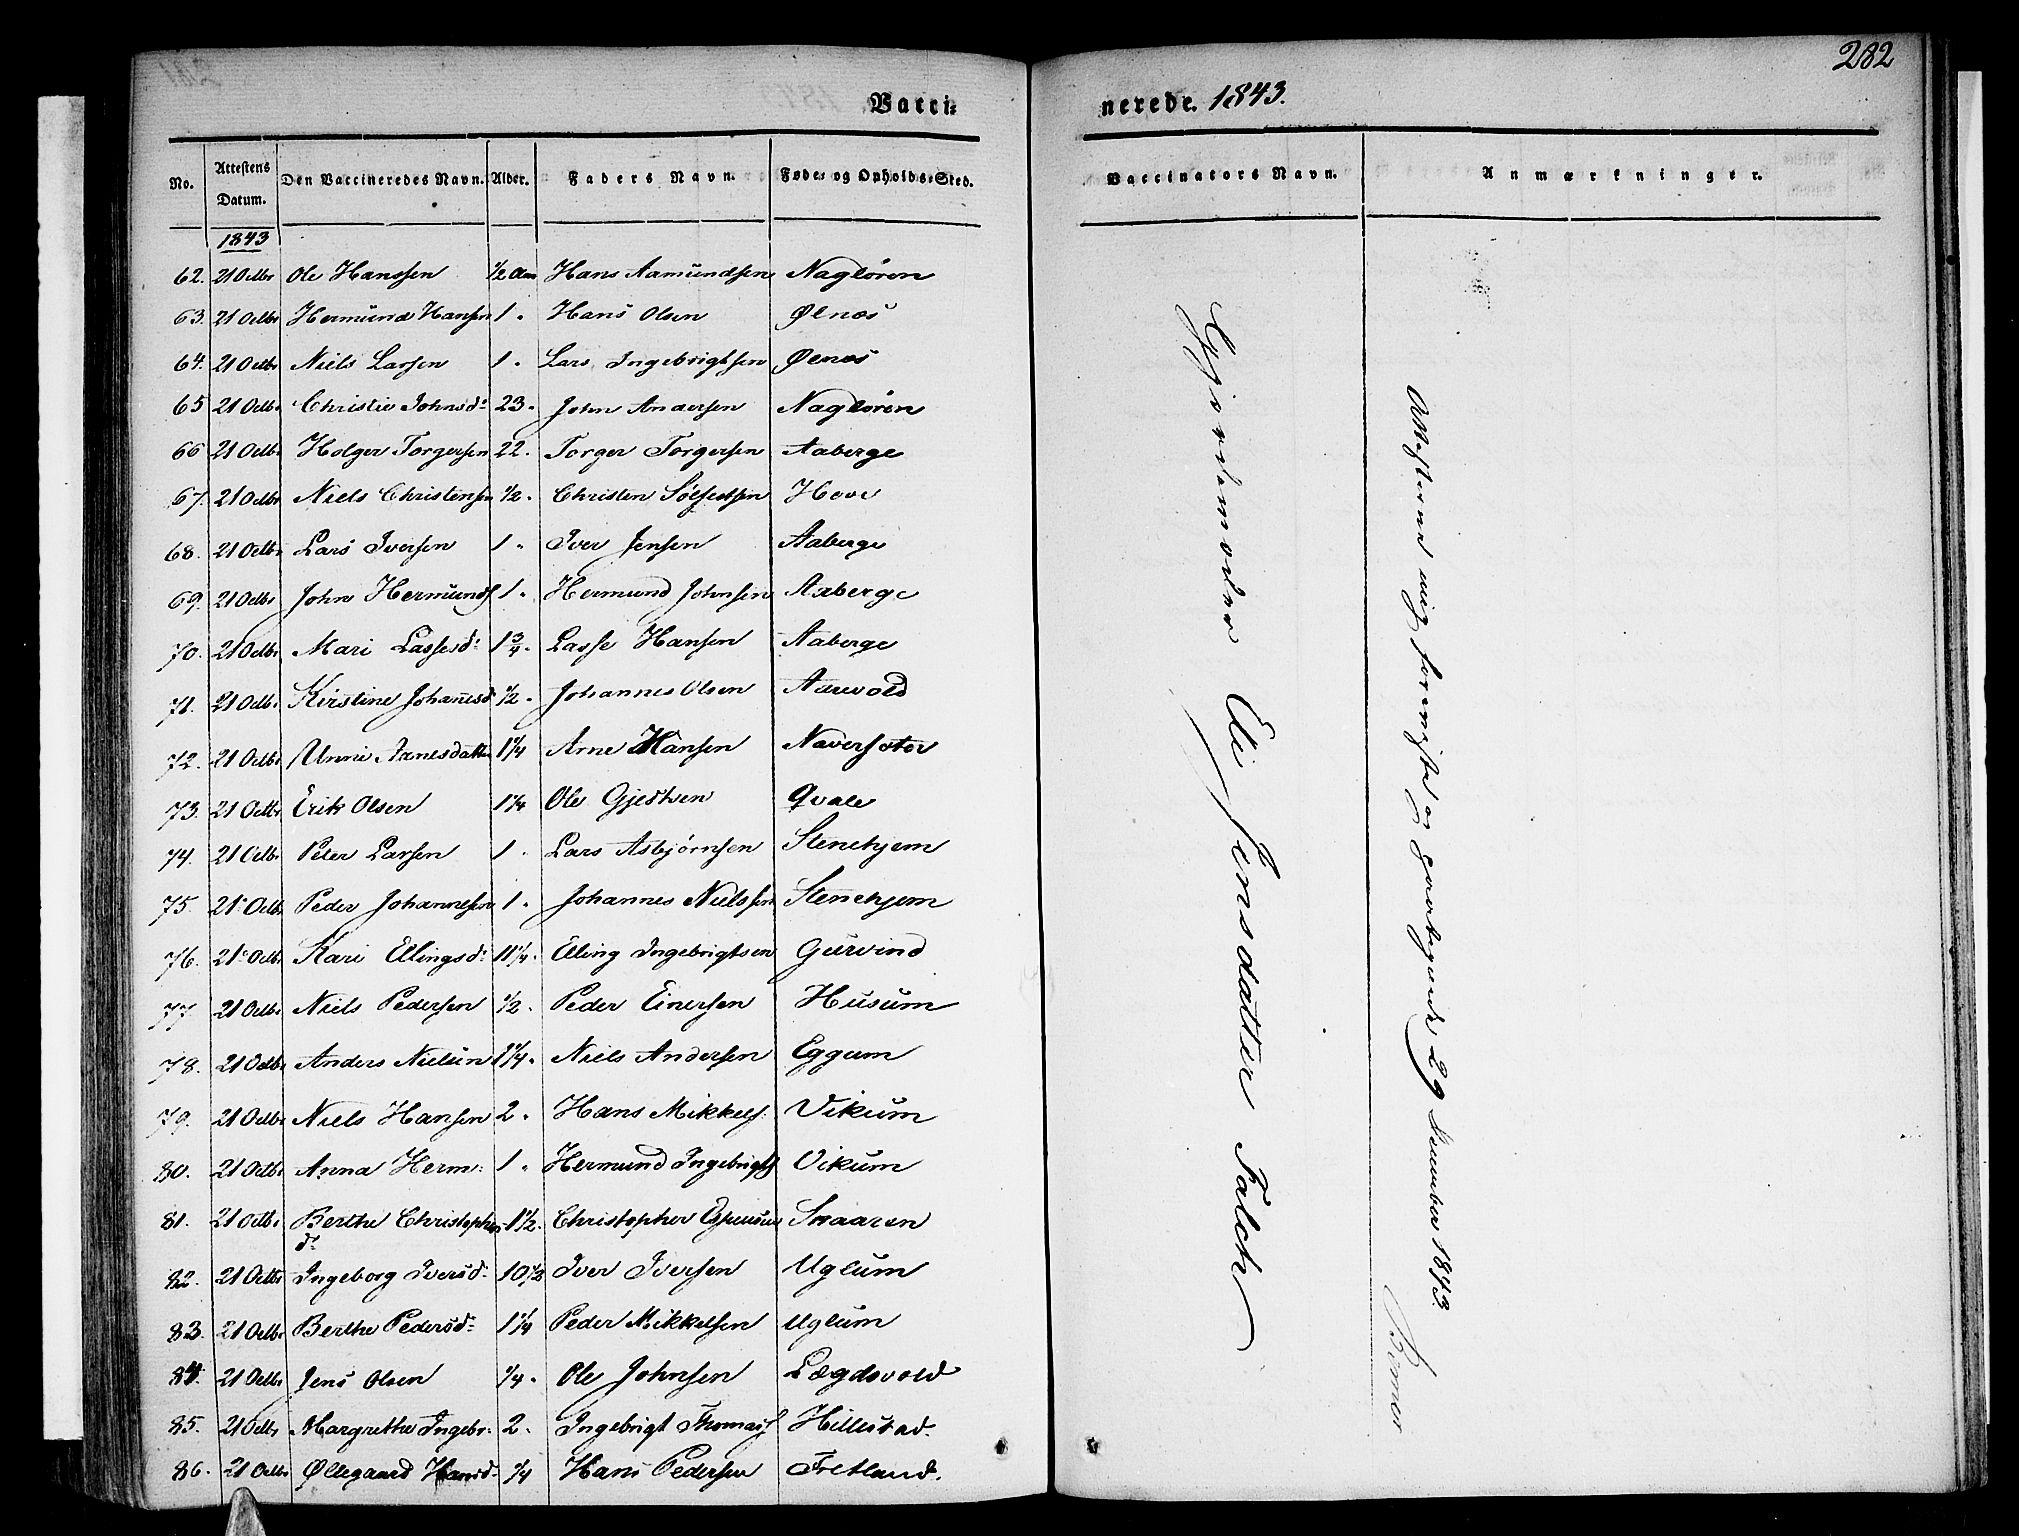 282
Vacci= nerede. 1843.
No. Attestens Datum. Den Vaccineredes Navn. Alder. Faders Navn. Føde- og Opholds-Sted. Vaccinators Navn. Anmærkninger.
1843
62. 21 Octbr Ole Hanssen 1/2 Aar Hans Aamundsen Nagløren
63. 21 Octbr Hermund Hansen 1 " Hans Olsen Ølnæs
64. 21 Octbr Niels Larsen 1 " Lars Ingebrigtsen Øenæs
65 21 Octbr Christie Johnsd: 23 " John Andersen Nagløren
66 21 Octbr Holger Torgersen 22 " Torger Torgersen Aaberge
67. 21 Octbr Niels Christensen 1/2 " Christen Sølfestsen Hove
68. 21 Octbr Lars Iversen 1 " Iver Jensen Aaberge
69. 21 Octbr John Hermunds 1 " Hermund Johnsen Aaberge
70. 21 Octbr Mari Lassesd: 1 3/4 " Lasse Hansen Aaberge
71. 21 Octbr Kirstine Johanesd 1/2 " Johannes Olsen Aarvold
72. 21 Octbr Unni Arnesdatter 1 1/4 Arne Hansen Naverseter
73. 21 Octbr Erik Olsen 1 1/4 Ole Gjestsen Qvale
74. 21 Octbr Peter Larsen 1 " Lars Asbjørnsen Stenehjem
75. 21 Octbr Peder Johannesen 1 " Johannes Nielssen Stenehjem
76. 21 Octbr Kari Ellingsd: 11 1/4 " Elling Ingebrigtsen Gurvind
77. 21 Octbr Niels Pedersen 1/2 " Peder Einersen Husum
78. 21 Octbr Anders Nielsen 1 1/4 " Niels Andersen Eggum
79. 21 Octbr Niels Hansen 2 " Hans Mikkels: Vikum
80. 21 Octbr Anna Herm: 1 " Hermund Ingebrigts Vikum
81. 21 Octbr Berthe Christophersd: 1 1/2 " Christopher Espensen Snaaren
82. 21 Octbr Ingeborg Iversd: 10 1/2 Iver Iversen Uglum
83. 21 Octbr Berthe Pedersd: 1 1/4 Peder Mikkelsen Uglum
84. 21 Octbr Jens Olsen 1/4 " Ole Johnsen Lægdsvold
85. 21 Octbr Margrethe Ingebr: 2 " Ingebrigt Thomass Hillestad.
86. 21 Octbr Øllegaard Hansd: 1/4 Hans Pedersen Fretland.
Gjordemoder Eli Jensdatter Falch
Attesterne mig forevist og 29 December 1843.